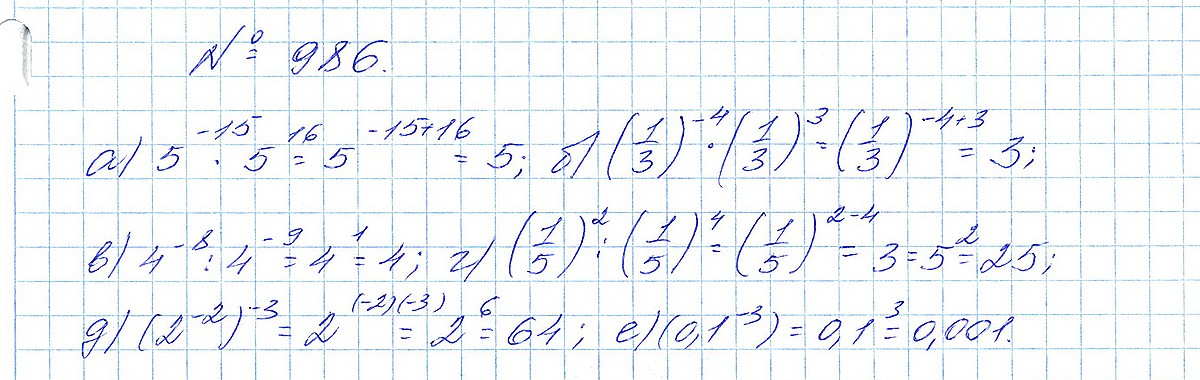 № 986.
а) 5⁻¹⁵ · 5¹⁶ = 5⁻¹⁵⁺¹⁶ = 5; б) (1/3)⁻⁴ · (1/3)³ = (1/3)⁻⁴⁺³ = 3;
в) 4⁻⁸ : 4⁻⁹ = 4¹ = 4; г) (1/5)² : (1/5)⁴ = (1/5)²⁻⁴ = 3 = 5² = 25;
д) (2⁻²)⁻³ = 2⁽⁻²⁾⁽⁻³⁾ = 2⁶ = 64; е) (0,1⁻³) = 0,1³ = 0,001.